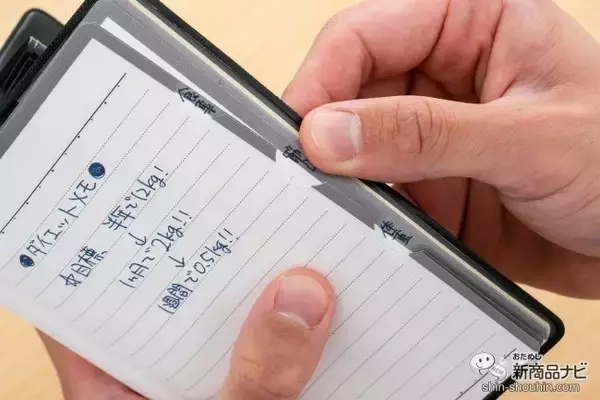 ●ダイエットメモ●
☆目標 半年で12kg!!
↑
1ヶ月で2kg!!
↑
1週間で0.5kg!!
食事
体重
おためし
新商品ナビ
shin-shouhin.com